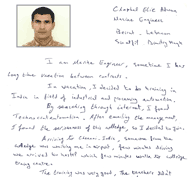 Marine Engineer
Beirut, Lebanon
I am Marine Engineer, sometime I has
long time vacation between contracts.
In vacation, I decided to be training in
India in field of industrial and processing automation.
By searching through internet, I found
Technocrat automation. After emailing the managment,
I found the seriousness of the college, so I decided to join.
Arriving to Chennai, India, someone from the
college was waiting me in airport, few minutes driving
we arrived to hostel which four minutes walk to college
The training was very good, the teachers